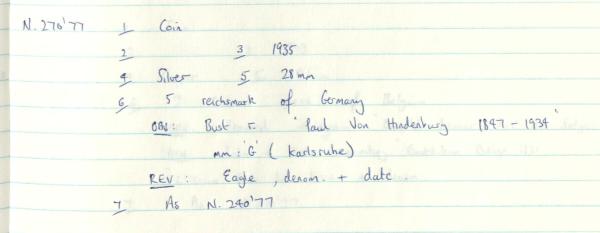 N. 270'77 1 Coin
2 3 1935
4 Silver 5 28mm
6 5 reichsmark of Germany
OBV: Bust r. 'Paul Von Hindenburg 1847 - 1934'
mm: 'G' (Karlsruhe)
REV: Eagle, denom. + date
7 As N. 240'77